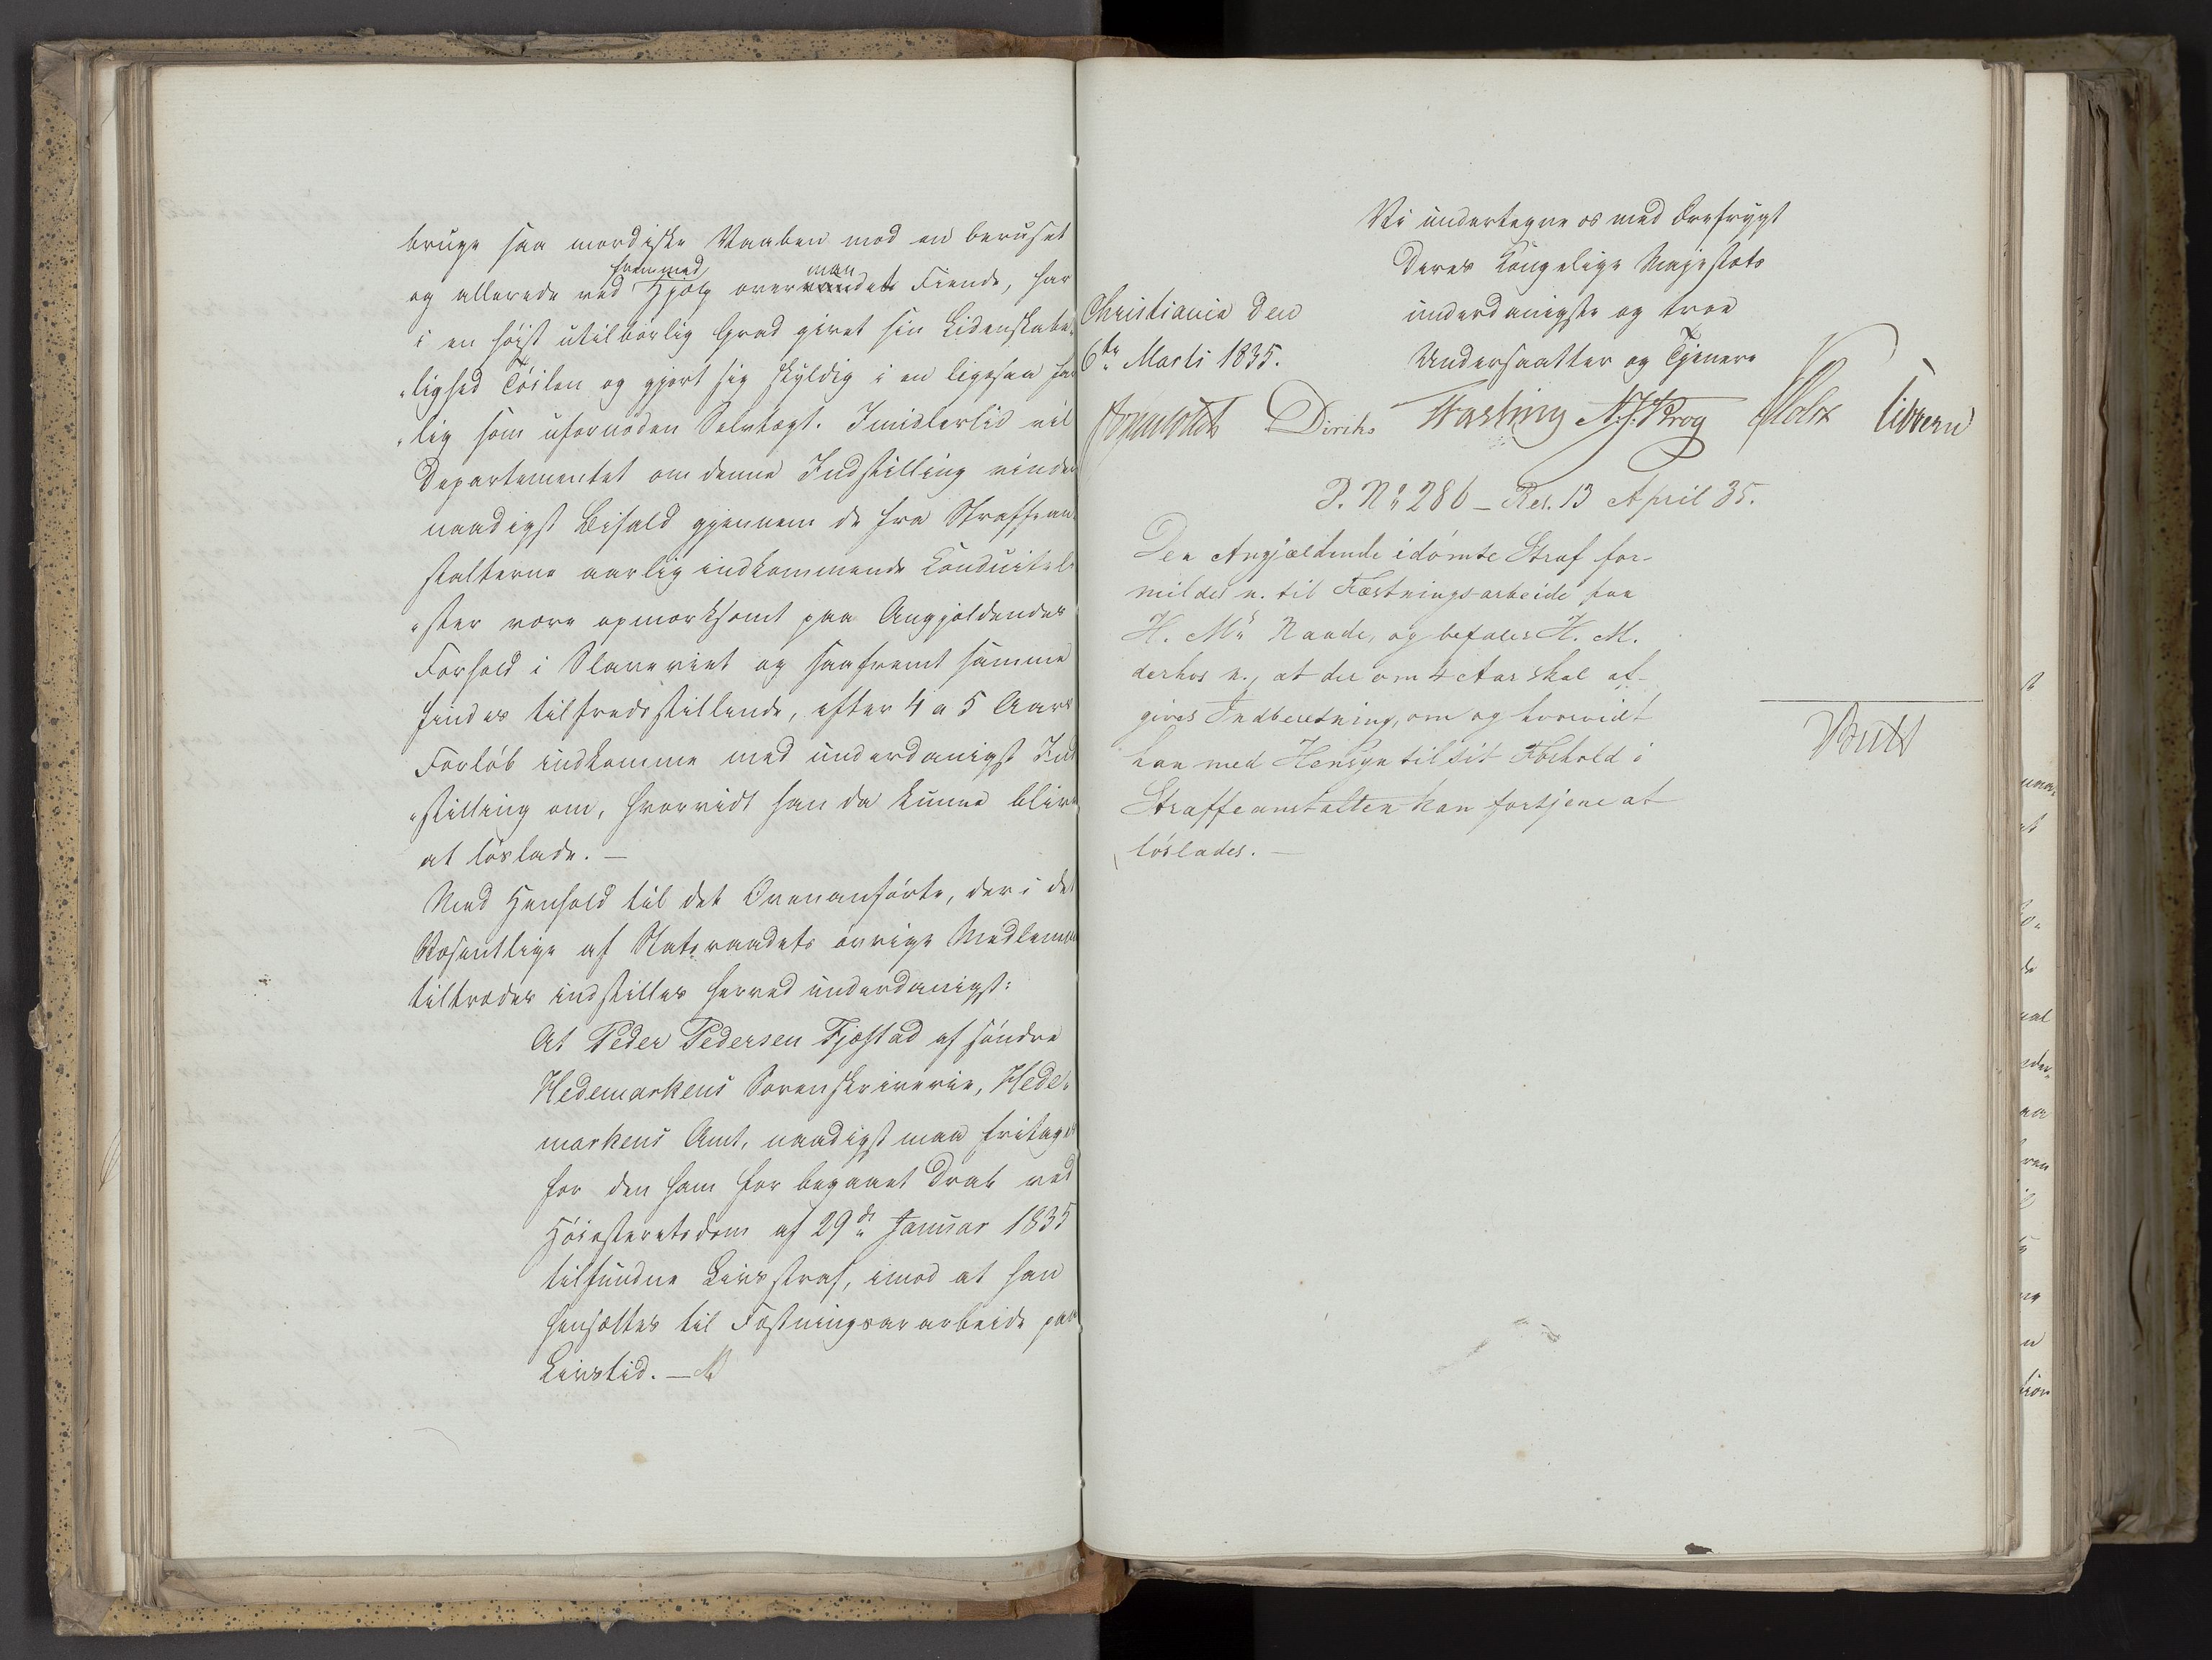 bruge saa mordiske Vaaben mod en beruset
og allerede ved fremmed Hjælp overmandet Fiende, har
i en høist utilbørlig Grad givet sin Lidenskabe-
„lighed Tøilen og gjort sig skyldig i en ligesaa far
„lig som ufornøden Selvtægt. Imidlertid vil
Departementet om denne Indstilling vinder
naadigst Bifald gjennem de fra Straffean-
stalterne aarlig indkommende Conduitel
„ster være opmærksomt paa Angjældendes
Forhold i Slaveriet og saafremt samme
findes tilfredsstillende, efter 4 a 5 Aars
Forløb indkomme med underdanigst Ind
„stilling om, hvorvidt han da kunne blive
at løslade. —
Med Henhold til det Ovenanførte, der i det
Væsentlige af Statsraadets øvrige Medlemmer
tiltrædes indstilles herved underdanigst:
At Peder Pedersen Fjæstad af søndre
Hedemarkens Sorenskriverie, Hede-
markens Amt, naadigst maa fritages
for den ham for begaaet Drab ved
Høiesteretsdom af 29de Januar 1835
tilfundne Livsstraf, imod at han
hensættes til Fæstningsarbeide paa
Livstid. —
Vi undertegne os med Ærefrygt
Deres Kongelige Majestæts
Christiania den underdanigste og troe
6te Marts 1835. Undersaatter og Tjenere
Diriks Fasting N. J. Krog Holst Vibe
P. No 286 – Res. 13 April 35.
Den Angjældende idømte Straf for-
mildes n. til Fæstningsarbeide paa
H. Ms Naade, og befaler H. M.
derhos n., at der om 4 Aar skal af-
gives Indberetning, om og hvorvidt
han med Hensyn til sit Forhold i
Straffeanstalten kan fortjene at
løslades. —